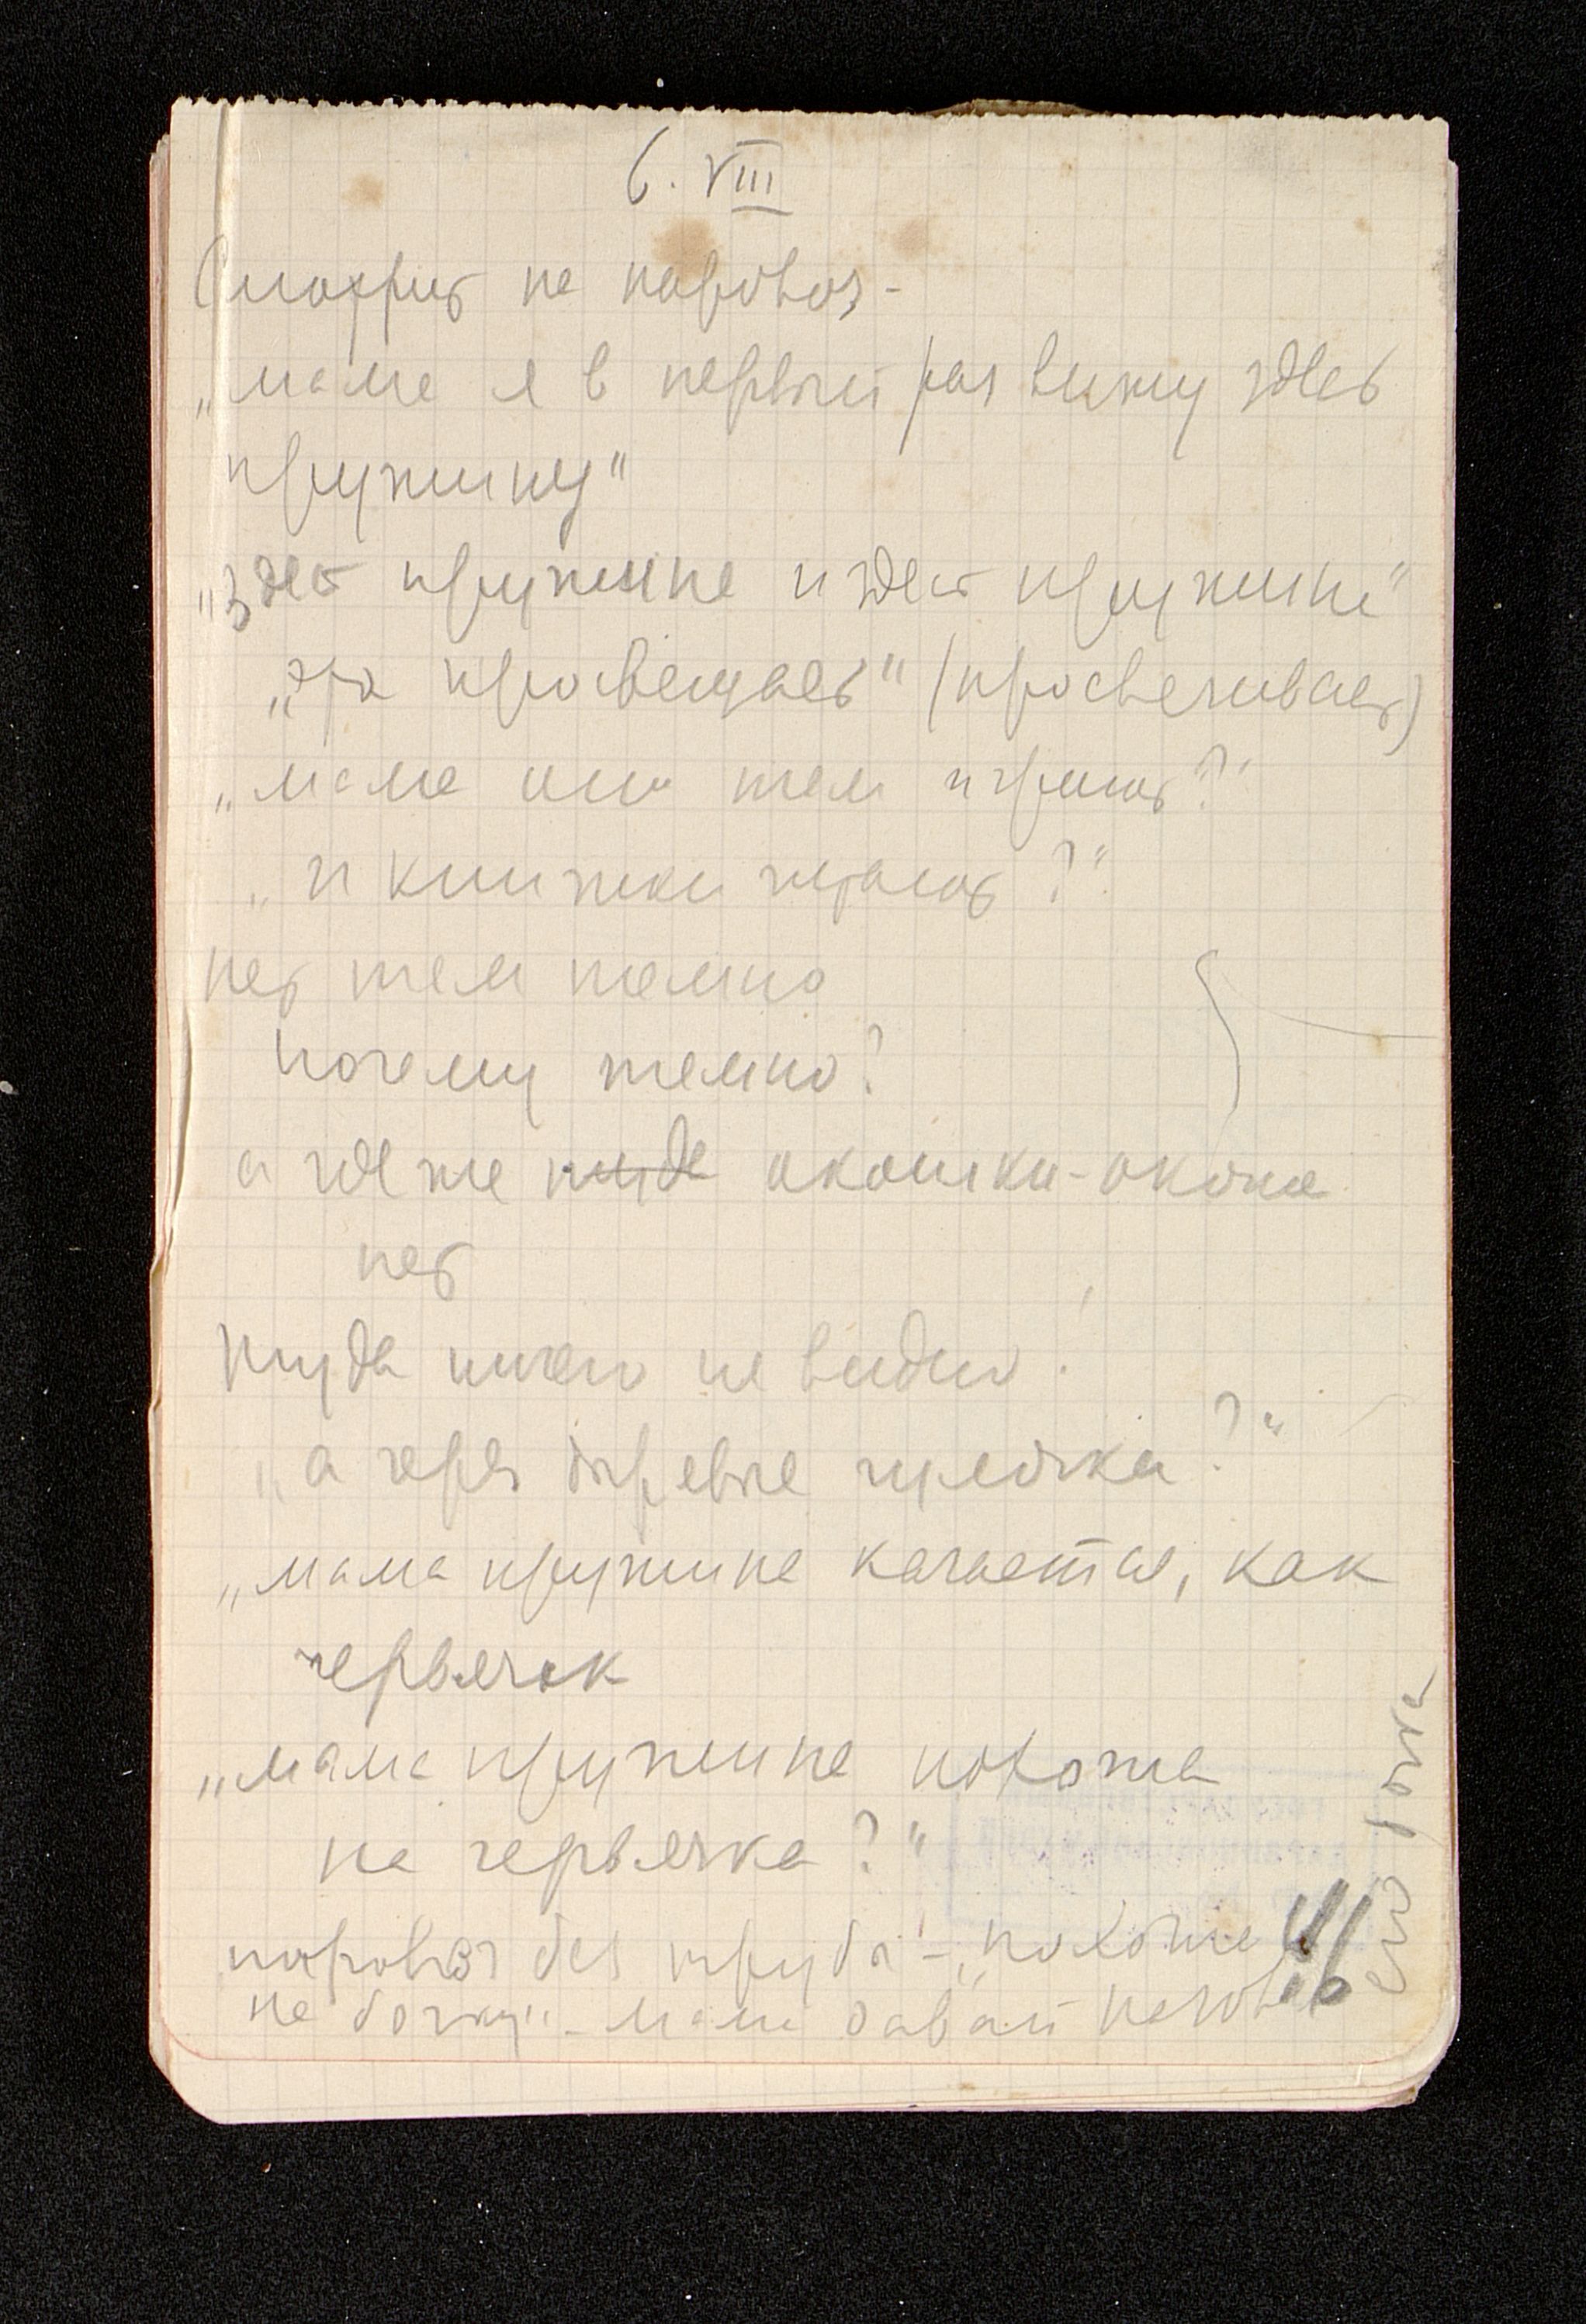 6. VIII
Смотрит на паровоз -
„мама я в первый раз вижу здесь
пружину"
„здесь пружина и здесь пружина"
„это просвещает" (просвечивает)
„мама они там играют?"
„и книжки читают?"
нет там темно
почему темно?
а где же туда окошки - окошка
нет
туда ничего не видно!
„а через деревья ?"
„мама пружина качается, как
червячок
„мама пружина похожа
на червячка?"
паровоз без трубы - „похоже
на бочку" - мама давай